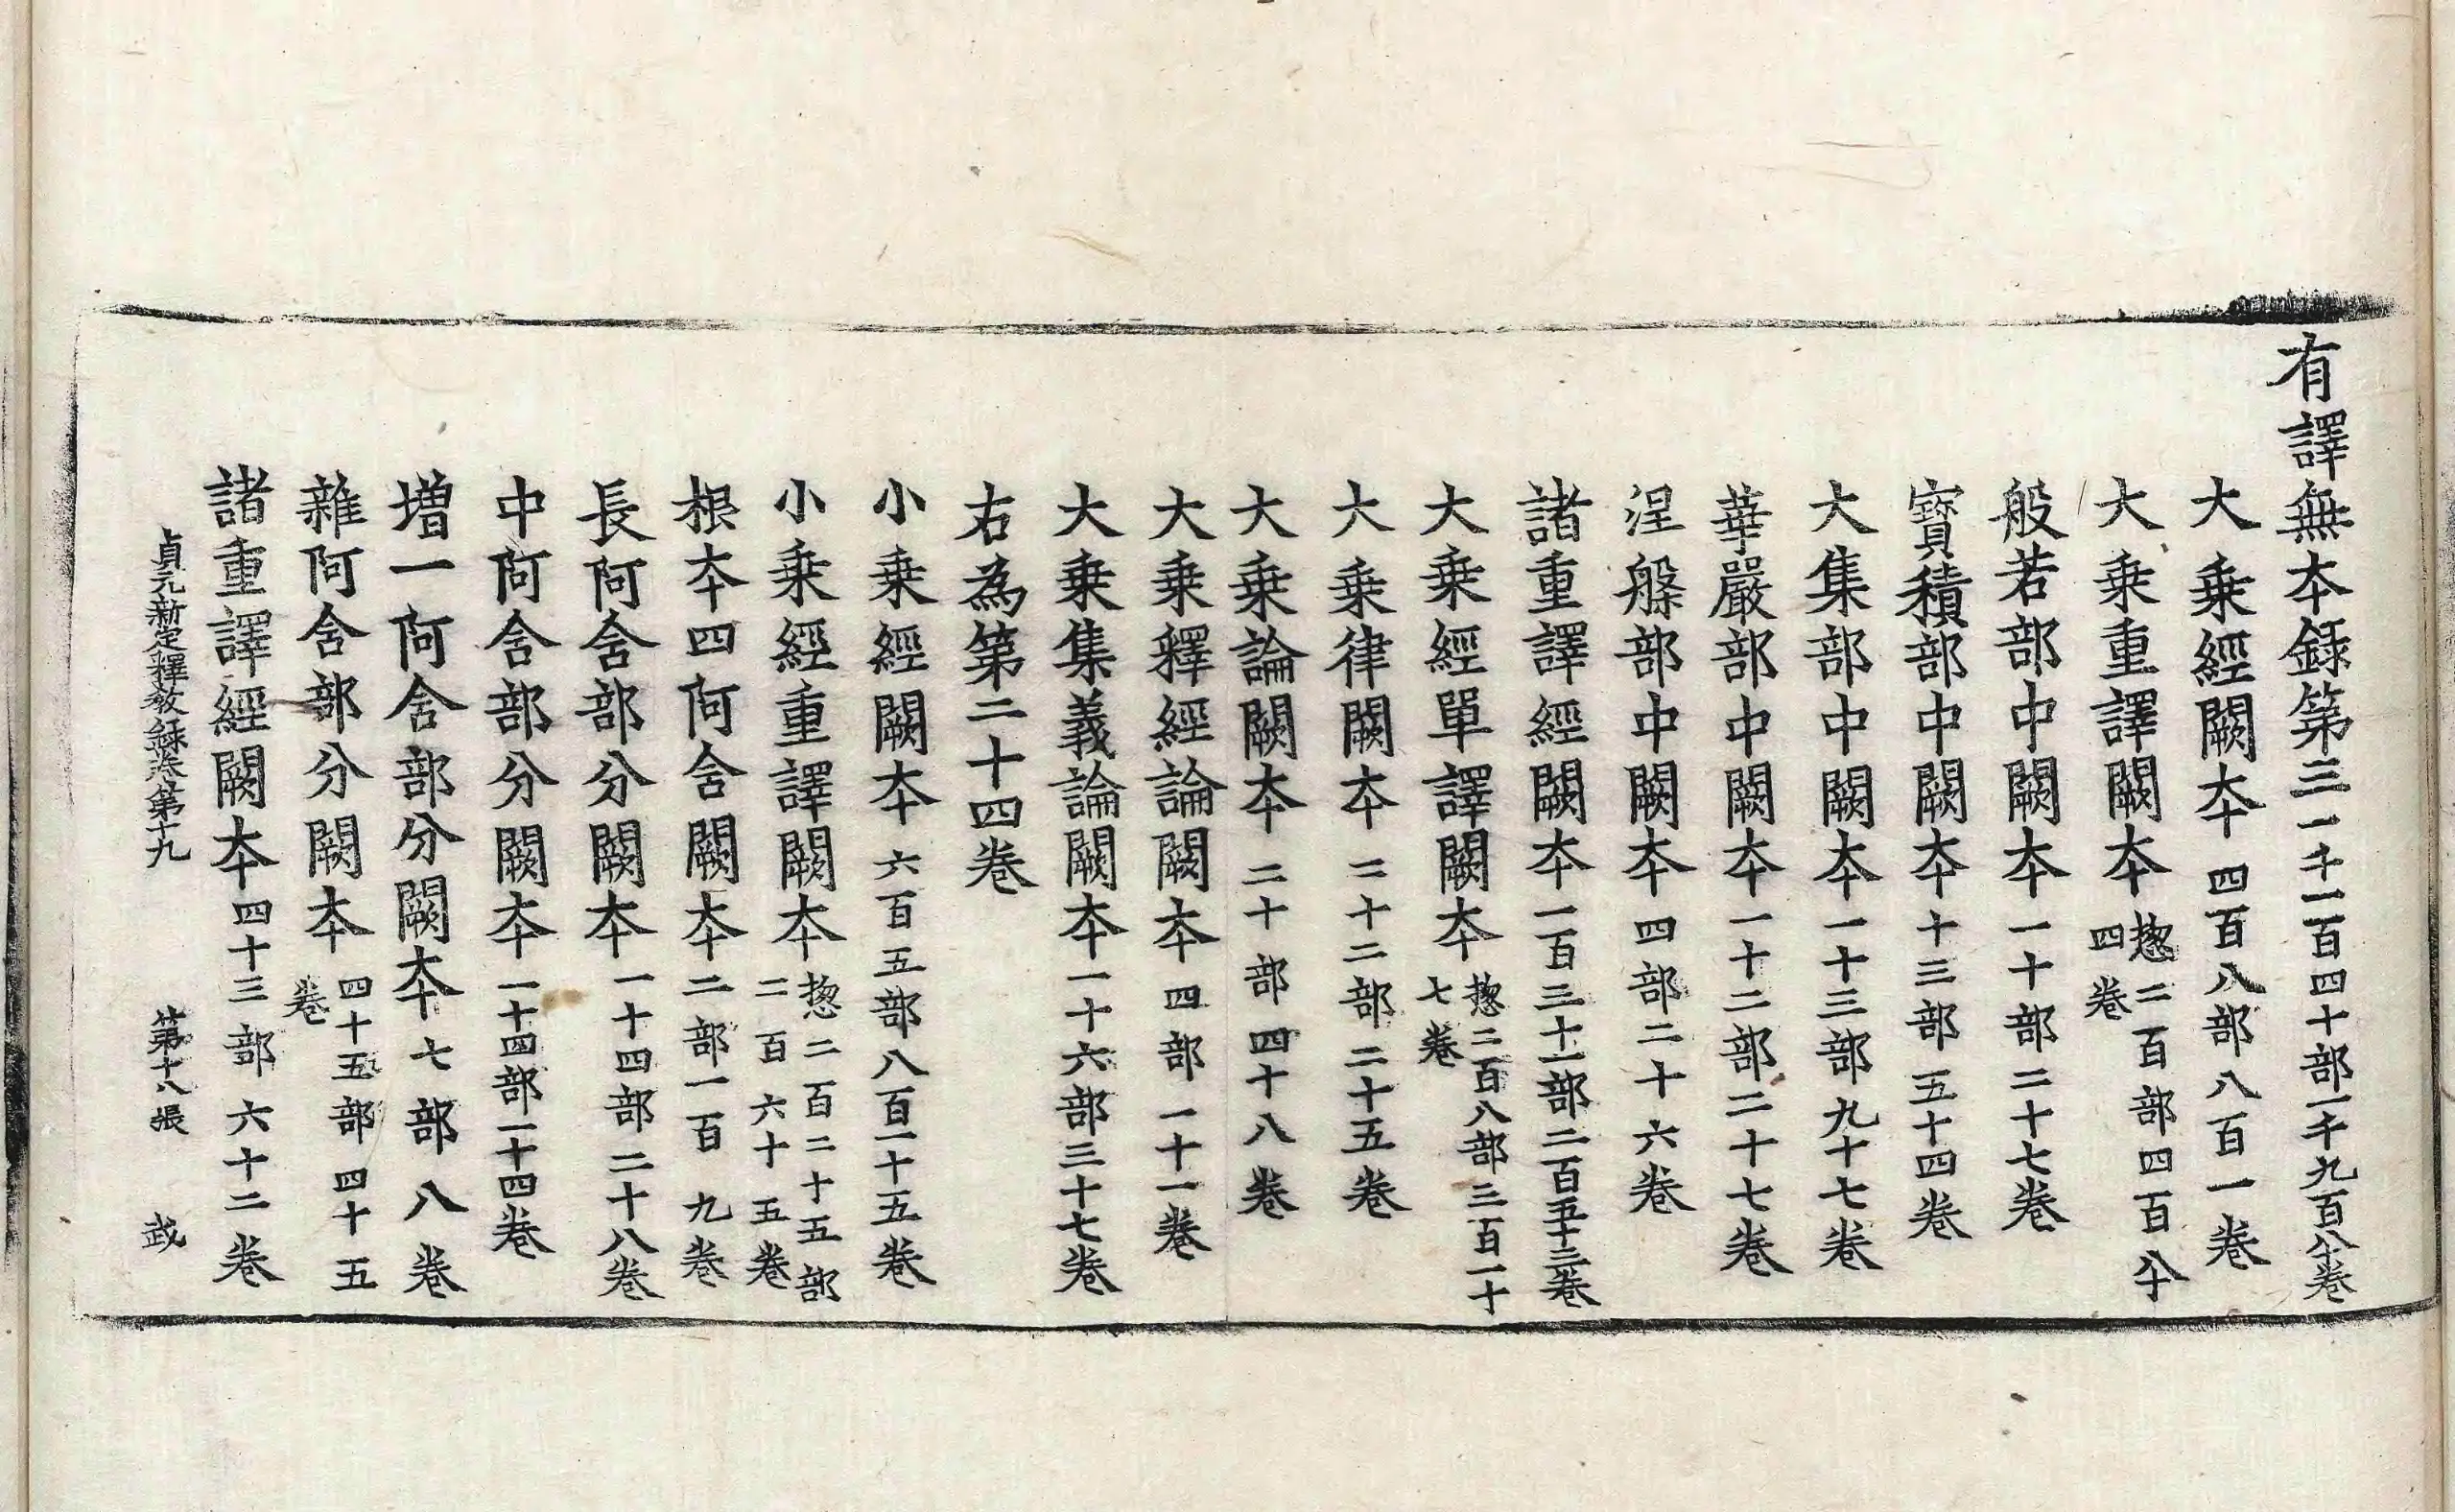 有譯無本録第三一千一百四十部一千九百八十卷
大乗經闕本四百八部八百一卷
大乗重譯闕本揔二百部四百八十四卷
般若部中闕本一十部二十七卷
寳積部中闕本十三部五十四卷
大集部中闕本一十三部九十七卷
華嚴部中闕本一十二部二十七卷
涅槃部中闕本四部二十六卷
諸重譯經闕本一百三十一部二百五十三卷
大乗經單譯闕本揔二百八部三百一十七卷
大乗律闕本二十二部二十五卷
大乗論闕本二十部四十八卷
大乗釋經論闕本四部一十一卷
大乗集義論闕本一十六部三十七卷
右為第二十四卷
小乗經闕本六百五部八百一十五卷
小乗經重譯闕本揔二百二十五部二百六十五卷
根本四阿含闕本二部一百九卷
長阿含部分闕本一十四部二十八卷
中阿含部分闕本一十四部一十四卷
増一阿含部分闕本七部八卷
雜阿含部分闕本四十五部四十五卷
諸重譯經闕本四十三部六十二卷
貞元新定釋教録卷第十九 第十八張 武